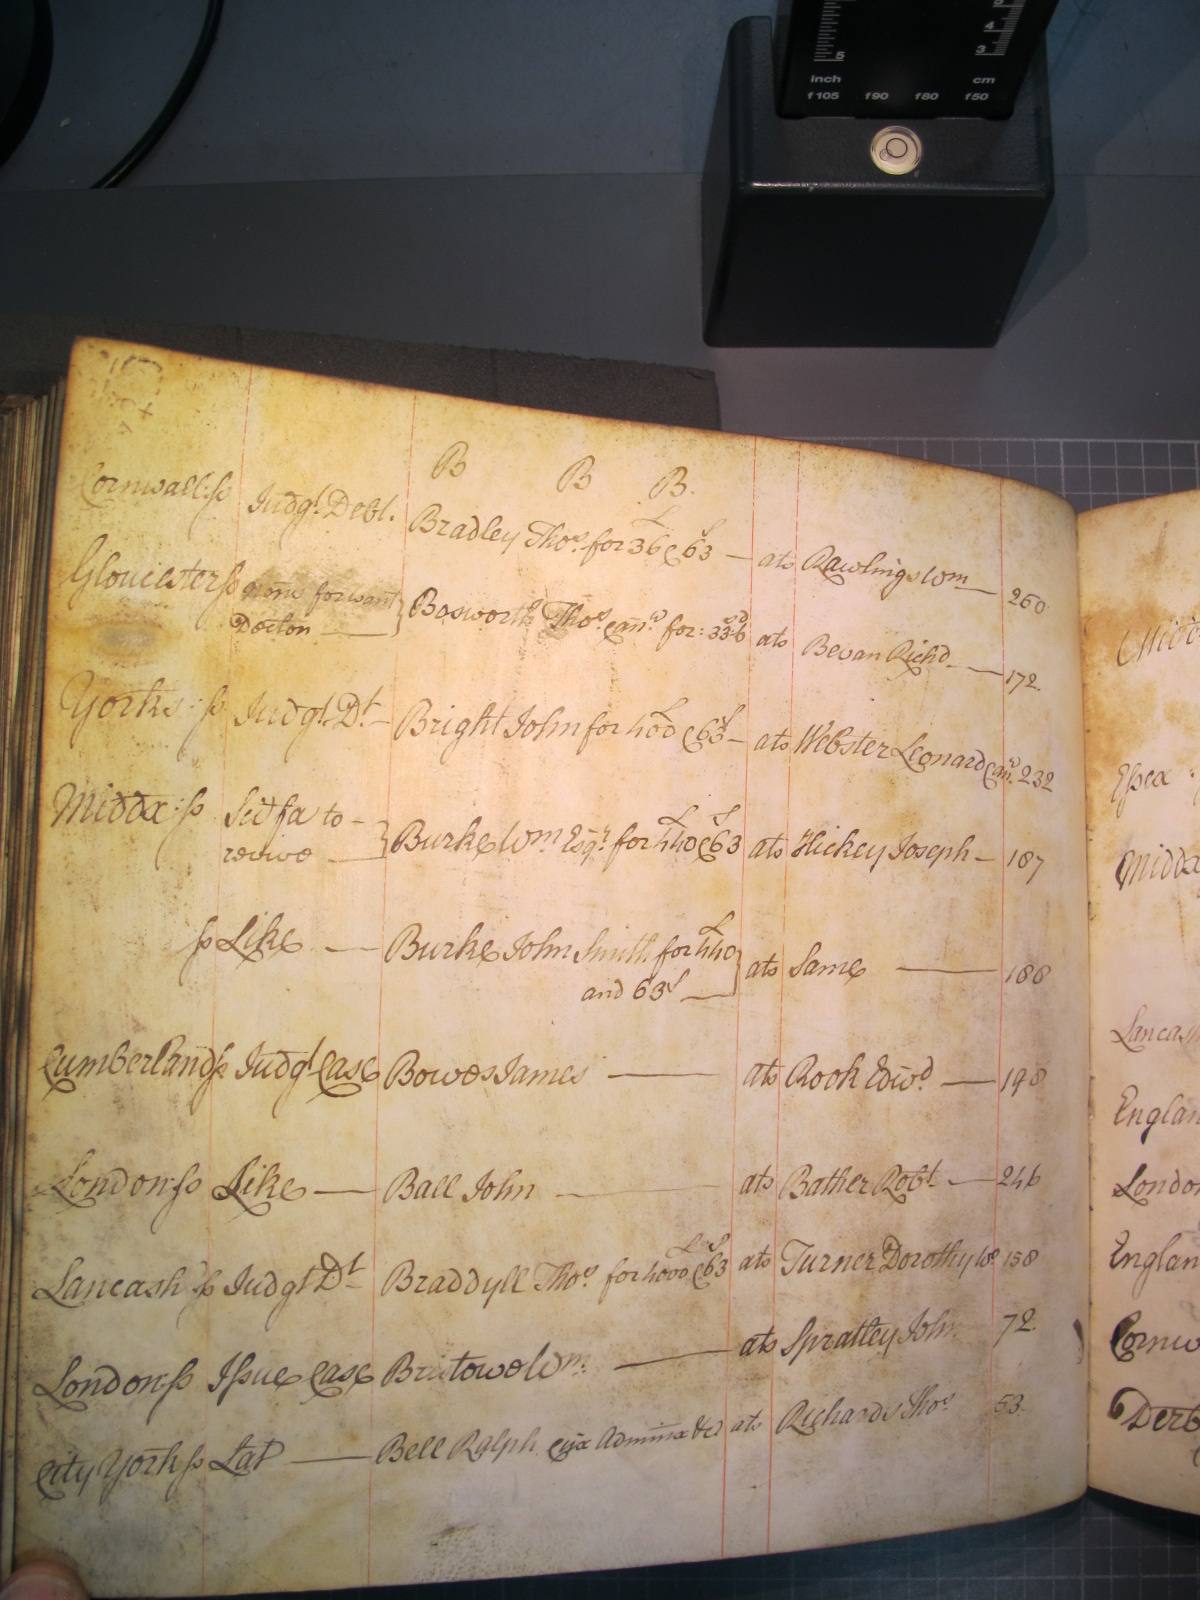 5 4 3
inch cm
f105 f90 f80 f50
B B B.
Cornwall: ss Judgt. Debt. Bradley Thos. for 36£ & 63s — ats Rawlings Wm — 260
Gloucester ss for want
Bosworth Thos. ats Bevan Richd — 172.
Yorks: ss Judgt. Dt — Bright John for 400£ & 63s — ats Webster Leonard 232
Middx: ss Sci fa to —
revive — } Burke Wm Esqr. for 440£ & 63s ats Hickey Joseph — 187
ss Like — Burke John Smith for 440£
and 63s — } ats Same — 188
Cumberland ss Judgt Case Bowes James — ats Rook Edwd — 198
London: ss Like — Ball John — ats Bather Robt — 246
Lancash ss Judgt Dt — Braddyll Thos. for 4000£ & 63s ats Turner Dorothy W. 158
London: ss Issue Case Wm. — ats Spratley John 72.
City York ss Lat — Bell Ralph ats Richards Thos 53.
Essex
Middx
Lancash
Englan
London
Englan
Cornw
Derb